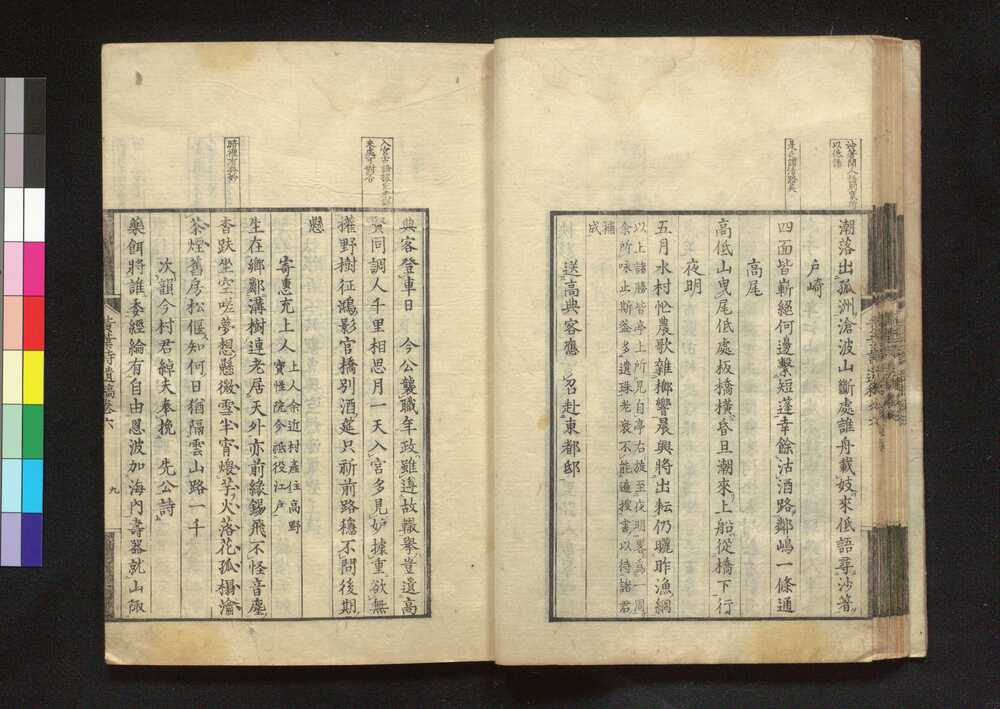 潮落出孤洲滄波山斷處誰舟載妓來低語尋沙箸
戶崎
四面皆嶄絕何邊繫短蓬幸餘沽酒路鄰嶋一條通
高尾
高低山曳尾低處板橋橫昏旦潮來上船從橋下行
夜明
五月水村忙農歌雜榔響晨興將出耘仍曬昨漁網
以上諸勝皆亭上所見自亭右旋至夜明畧為一周
余所咏止斯益多遺珠老衰不能遍搜書以待諸君
補
成
送高典客應 召赴東都邸
典客登車日 今公襲職年政雖遵故轍舉豈遺高
賢同調人千里相思月一天入宮多見妒據重欲無
權野樹征鴻影官橋別酒筵只祈前路穩不問後期
懸
寄惠充上人
上人余近村產住高野
寶性院今祗役江戶
生在鄉鄰溝樹連老居天外亦前緣錫飛不怪音塵
杳趺坐空嗟夢想懸微雪半宵煨芋火落花孤榻瀹
茶煙舊房松偃知何日猶隔雲山路一千
次韻今村君綽夫奉挽 先公詩
藥餌將誰委經綸有自由恩波加海內壽器就山陬
黃葉詩遺稿卷六
九